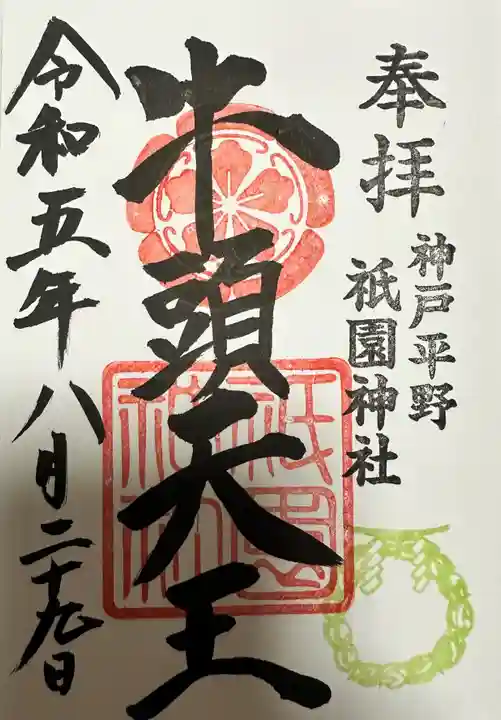 奉拝
神戸平野
祇園神社
牛頭天王
祇園
神社
令和五年八月二十九日